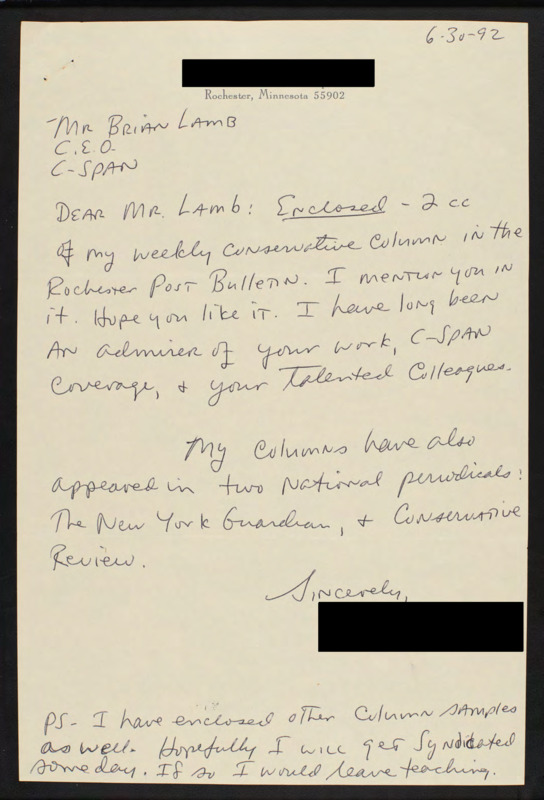 6-30-92
Rochester, Minnesota 55902
Mr Brian Lamb
C.E.O.
C-SPAN
Dear Mr. Lamb: Enclosed - 2 cc
of my weekly conservative column in the
Rochester Post Bulletin. I mention you in
it. Hope you like it. I have long been
an admirer of your work, C-SPAN
coverage, & your talented colleagues.
My columns have also
appeared in two national periodicals:
The New York Guardian, & Conservative
Review.
Sincerely,
PS- I have enclosed other column samples
as well. Hopefully I will get syndicated
someday. If so I would leave teaching.